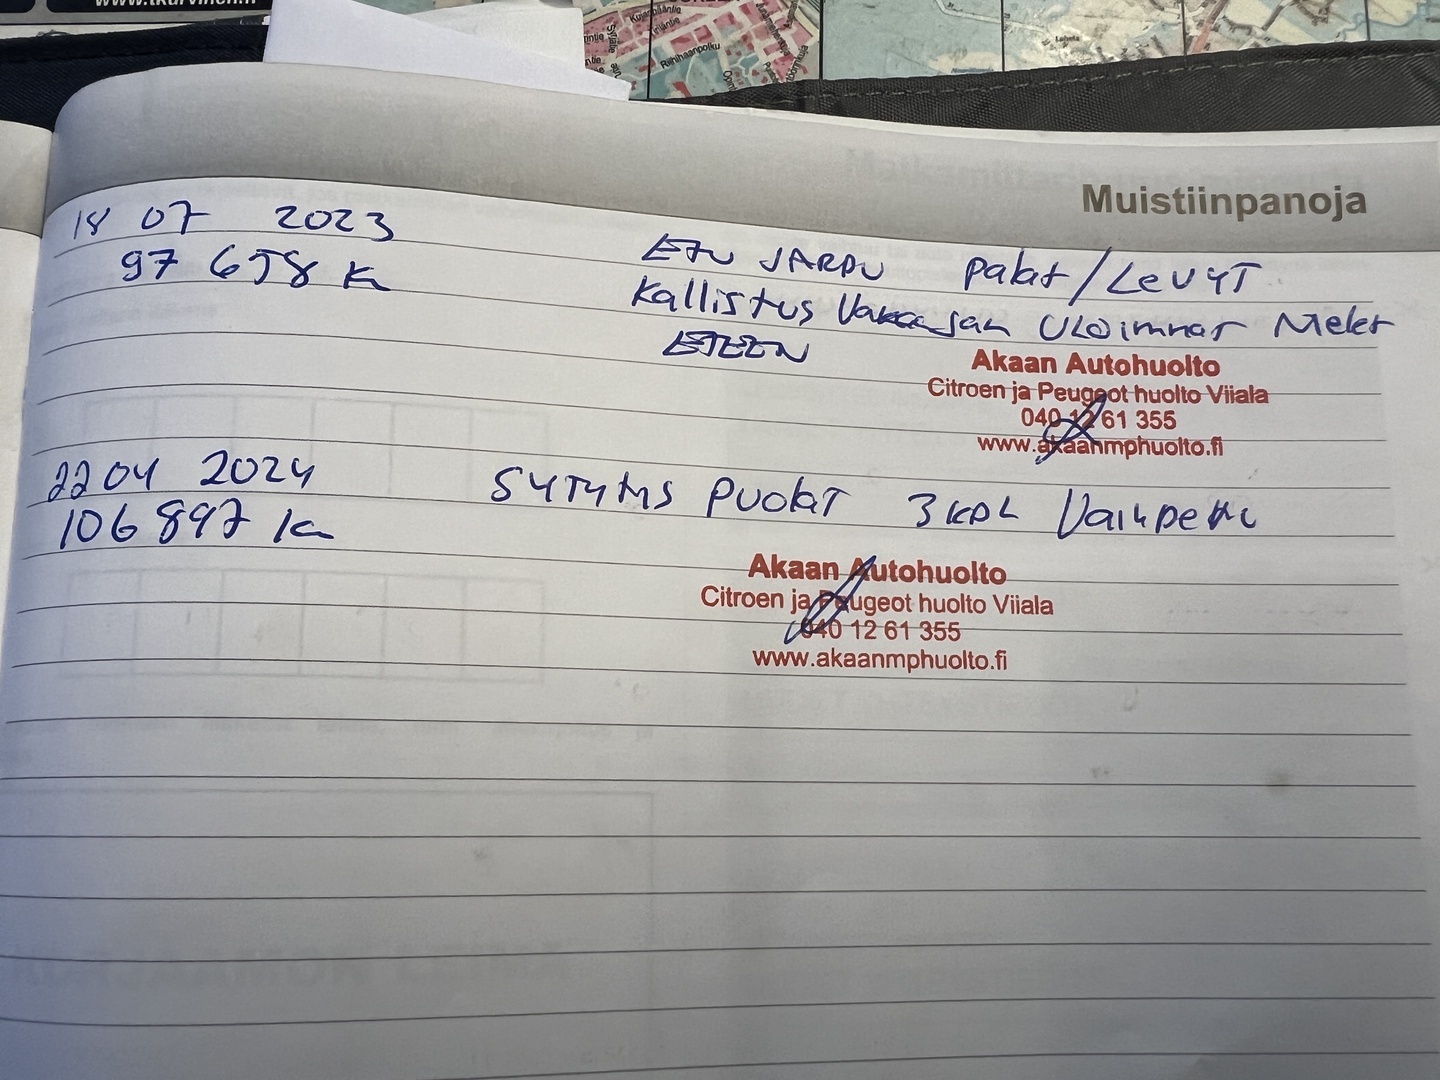 www.tkarvinen.fi
Kujanpääntie
Riihihaanpolku
Muistiinpanoja
18 07 2023
97 658 km
ETU JARRU palat / LeVYT
Kallistus Vakaajan ULOimmat
ETEEN
Akaan Autohuolto
Citroen ja Peugeot huolto Viiala
040 12 61 355
www.akaanmphuolto.fi
22 04 2024
106 897 km
SYTYTYS PUOLAT 3 KPL
Akaan Autohuolto
Citroen ja Peugeot huolto Viiala
040 12 61 355
www.akaanmphuolto.fi